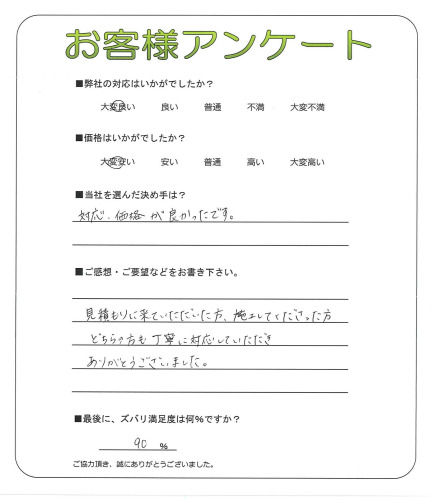 お客様アンケート
■弊社の対応はいかがでしたか？
大変良い 良い 普通 不満 大変不満
■価格はいかがでしたか？
大変安い 安い 普通 高い 大変高い
■当社を選んだ決め手は？
対応、価格が良かったです。
■ご感想・ご要望などをお書き下さい。
見積もりに来ていただいた方、施工してくださった方
どちらの方も丁寧に対応していただき
ありがとうございました。
■最後に、ズバリ満足度は何%ですか？
90 %
ご協力頂き、誠にありがとうございました。